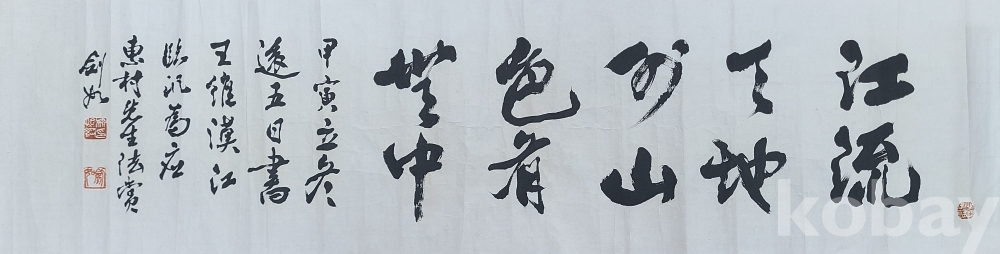 江流
天地
外山
色有
無中
甲寅立冬
後五日書
王維漢江
臨汎為應
惠村先生法賞
劍如
kobay